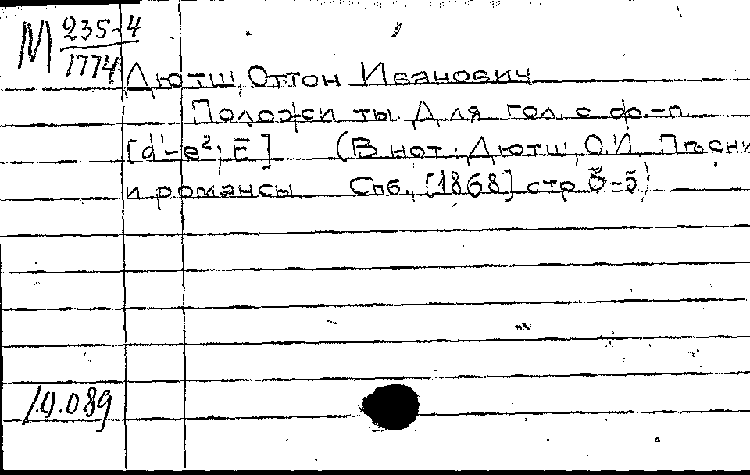 М 235-4
1774
Дютш, Оттон Иванович
Положи ты. Для гол. с ф.-п.
[d¹-e²; E] (В нот.: Дютш, О.И. Песни
и романсы Спб., [1868] стр 3-5)
10.089